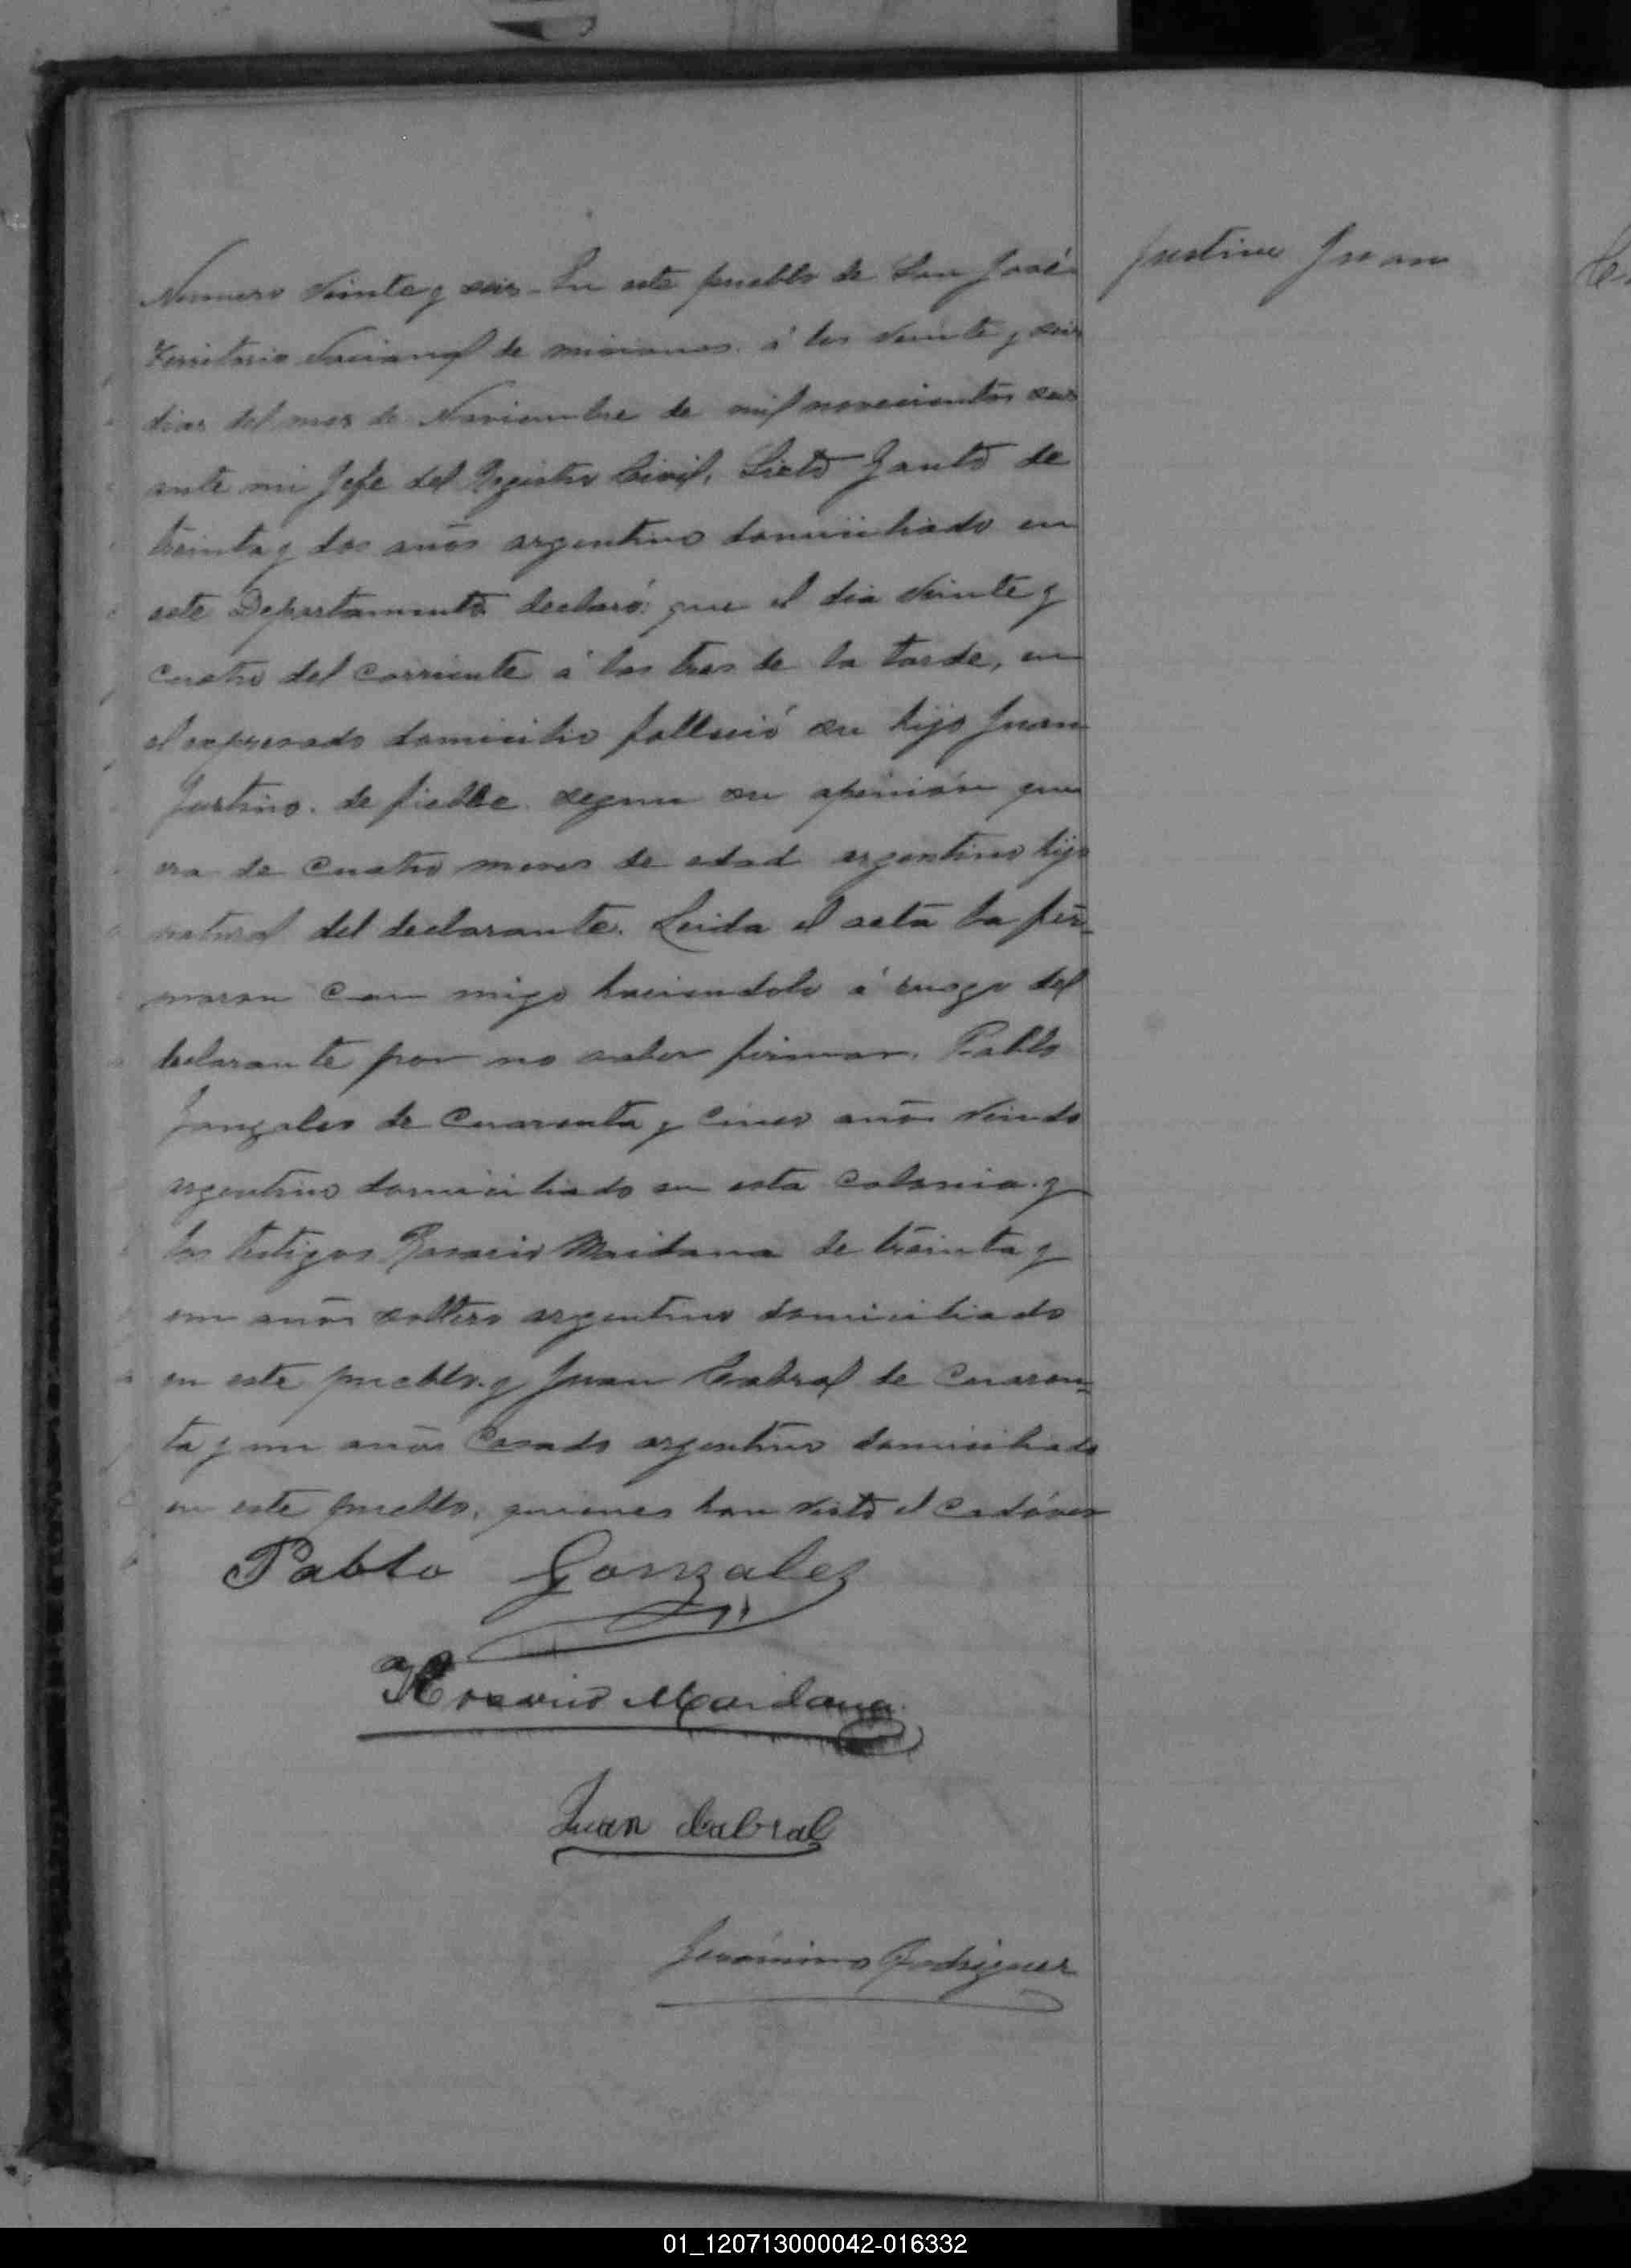 Numero Veinte y seis - En este pueblo de San José
Territorio Nacional de misiones á los Veinte y seis
dias del mes de Noviembre de mil novecientos seis
ante mi Jefe del Registro Civil, Sixto Santo de
treinta y dos años argentino domiciliado en
este Departamento declaró: que el dia Veinte y
cuatro del corriente á las tres de la tarde, en
el expresado domicilio falleció su hijo Juan
Justino. de fiebre segun su opinión que
era de cuatro meses de edad argentino hijo
natural del declarante. Leida el acta la fir-
maron con migo haciendolo á ruego del
declarante por no saber firmar, Pablo
Gonzales de cuarenta y cinco años viudo
argentino domiciliado en esta colonia y
los testigos Rosario Maidana de treinta y
un años soltero argentino domiciliado
en este pueblo y Juan Cabral de cuaren-
ta y un años Casado argentino domiciliado
en este pueblo, quienes han visto el cadáver
Pablo Gonzalez
Rosario Maidana
Juan Cabral
Jerónimo Rodriguez
Justino Juan
01_120713000042-016332